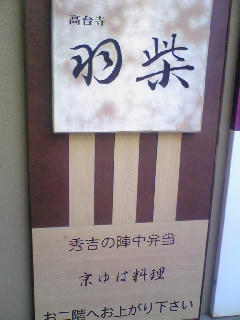 高台寺
羽柴
秀吉の陣中弁当
京ゆば料理
お二階へお上がり下さい